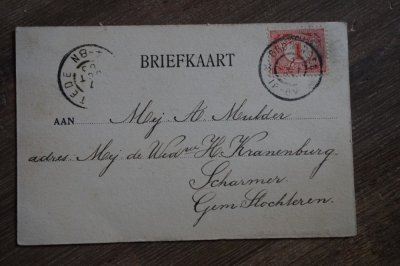 BRIEFKAART
AAN Mej A Mulder
adres. Mej de Wed^we H. Kranenburg.
Scharmer.
Gem Slochteren.
1